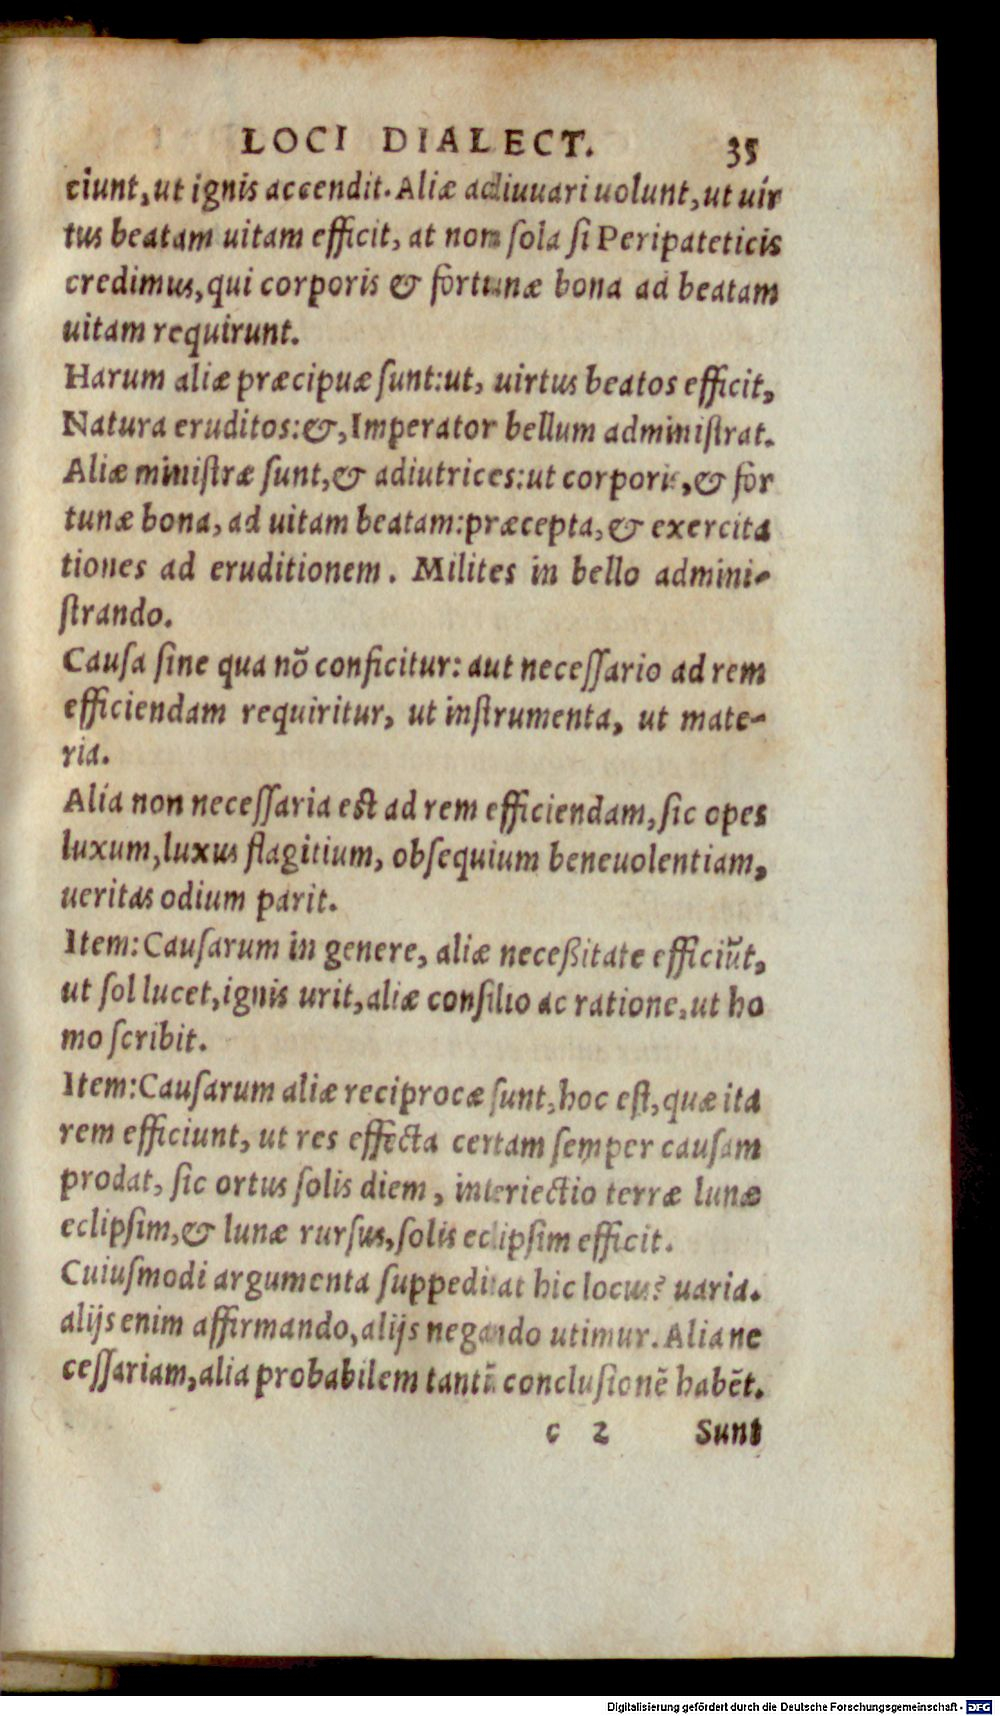 LOCI DIALECT. 35
ciunt, ut ignis accendit. Aliæ adiuuari uolunt, ut uir
tus beatam uitam efficit, at non ſola ſi Peripateticis
credimus, qui corporis & fortunæ bona ad beatam
uitam requirunt.
Harum aliæ præcipuæ ſunt: ut, uirtus beatos efficit,
Natura eruditos: &, Imperator bellum adminiſtrat.
Aliæ miniſtræ ſunt, & adiutrices: ut corporis, & for
tunæ bona, ad uitam beatam: præcepta, & exercita
tiones ad eruditionem. Milites in bello admini-
ſtrando.
Cauſa ſine qua nō conficitur: aut neceſſario ad rem
efficiendam requiritur, ut inſtrumenta, ut mate-
ria.
Alia non neceſſaria est ad rem efficiendam, ſic opes
luxum, luxus flagitium, obſequium beneuolentiam,
ueritas odium parit.
Item: Cauſarum in genere, aliæ neceßitate efficiūt,
ut ſol lucet, ignis urit, aliæ conſilio ac ratione, ut ho
mo ſcribit.
Item: Cauſarum aliæ reciprocæ ſunt, hoc eſt, quæ ita
rem efficiunt, ut res effecta certam ſemper cauſam
prodat, ſic ortus ſolis diem, interiectio terræ lunæ
eclipſim, & lunæ rurſus, ſolis eclipſim efficit.
Cuiuſmodi argumenta ſuppeditat hic locus? uaria.
alijs enim affirmando, alijs negando utimur. Alia ne
ceſſariam, alia probabilem tantū concluſionē habēt.
c 2 Sunt
Digitalisierung gefördert durch die Deutsche Forschungsgemeinschaft - DFG